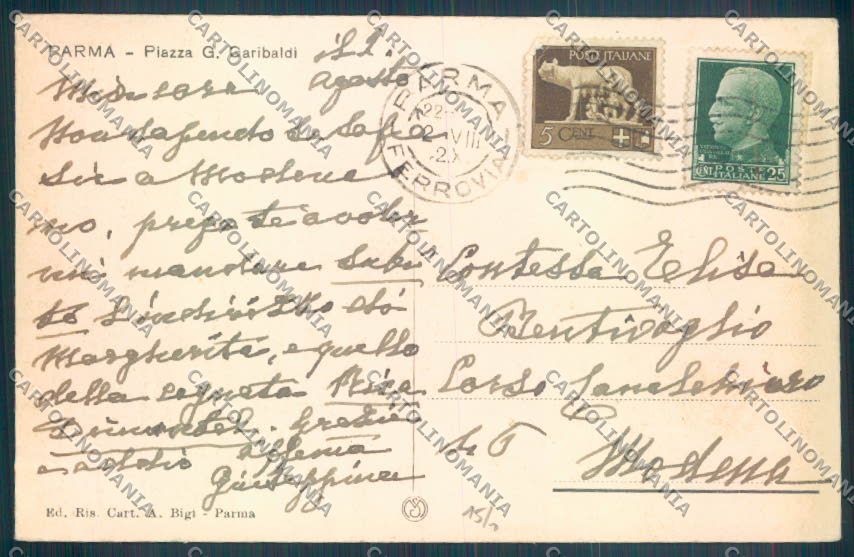 PARMA - Piazza G. Garibaldi
il 1. agosto
Mia cara
Non sapendo se
sia a Modena
no, prego te a voler
mi mandare subi
to l'indirizzo di
Margherita, e quello
della cognata
Grazie
e affma
Giuseppina
Ed. Ris. Cart. A. Bigi - Parma
PARMA
FERROVIA
22
2 VIII
POSTE ITALIANE
5 CENT.
POSTE
ITALIANE
CENT. 25
Contessa Elisa
Bentivoglio
Corso Canalchiaro
46
Modena
15/
CARTOLINOMANIA